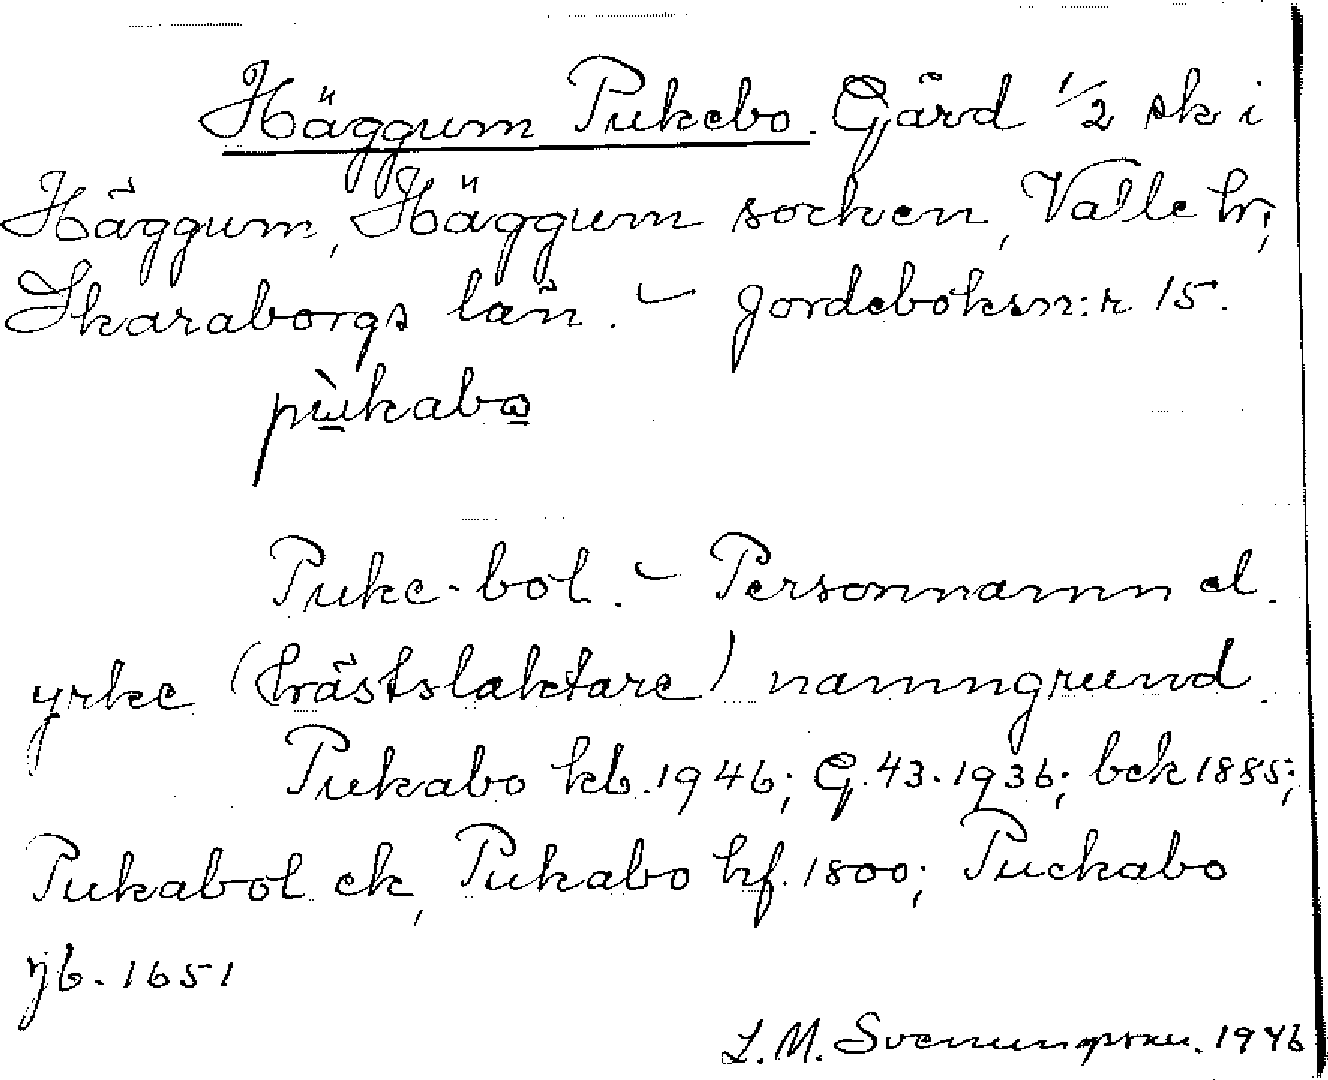 Häggum Pukebo. Gård 1/2 sk i
Häggum, Häggum socken, Valle hr,
Skaraborgs län. - Jordeboksn:r 15.
pùkabo
Puke-bol. - Personnamn el.
yrke (hästslaktare) namngrund.
Pukabo kb. 1946; G. 43. 1936; bek 1885;
Pukabol ek, Pukabo hf. 1800; Puckabo
jb. 1651
L. M. Svenungsson. 1946